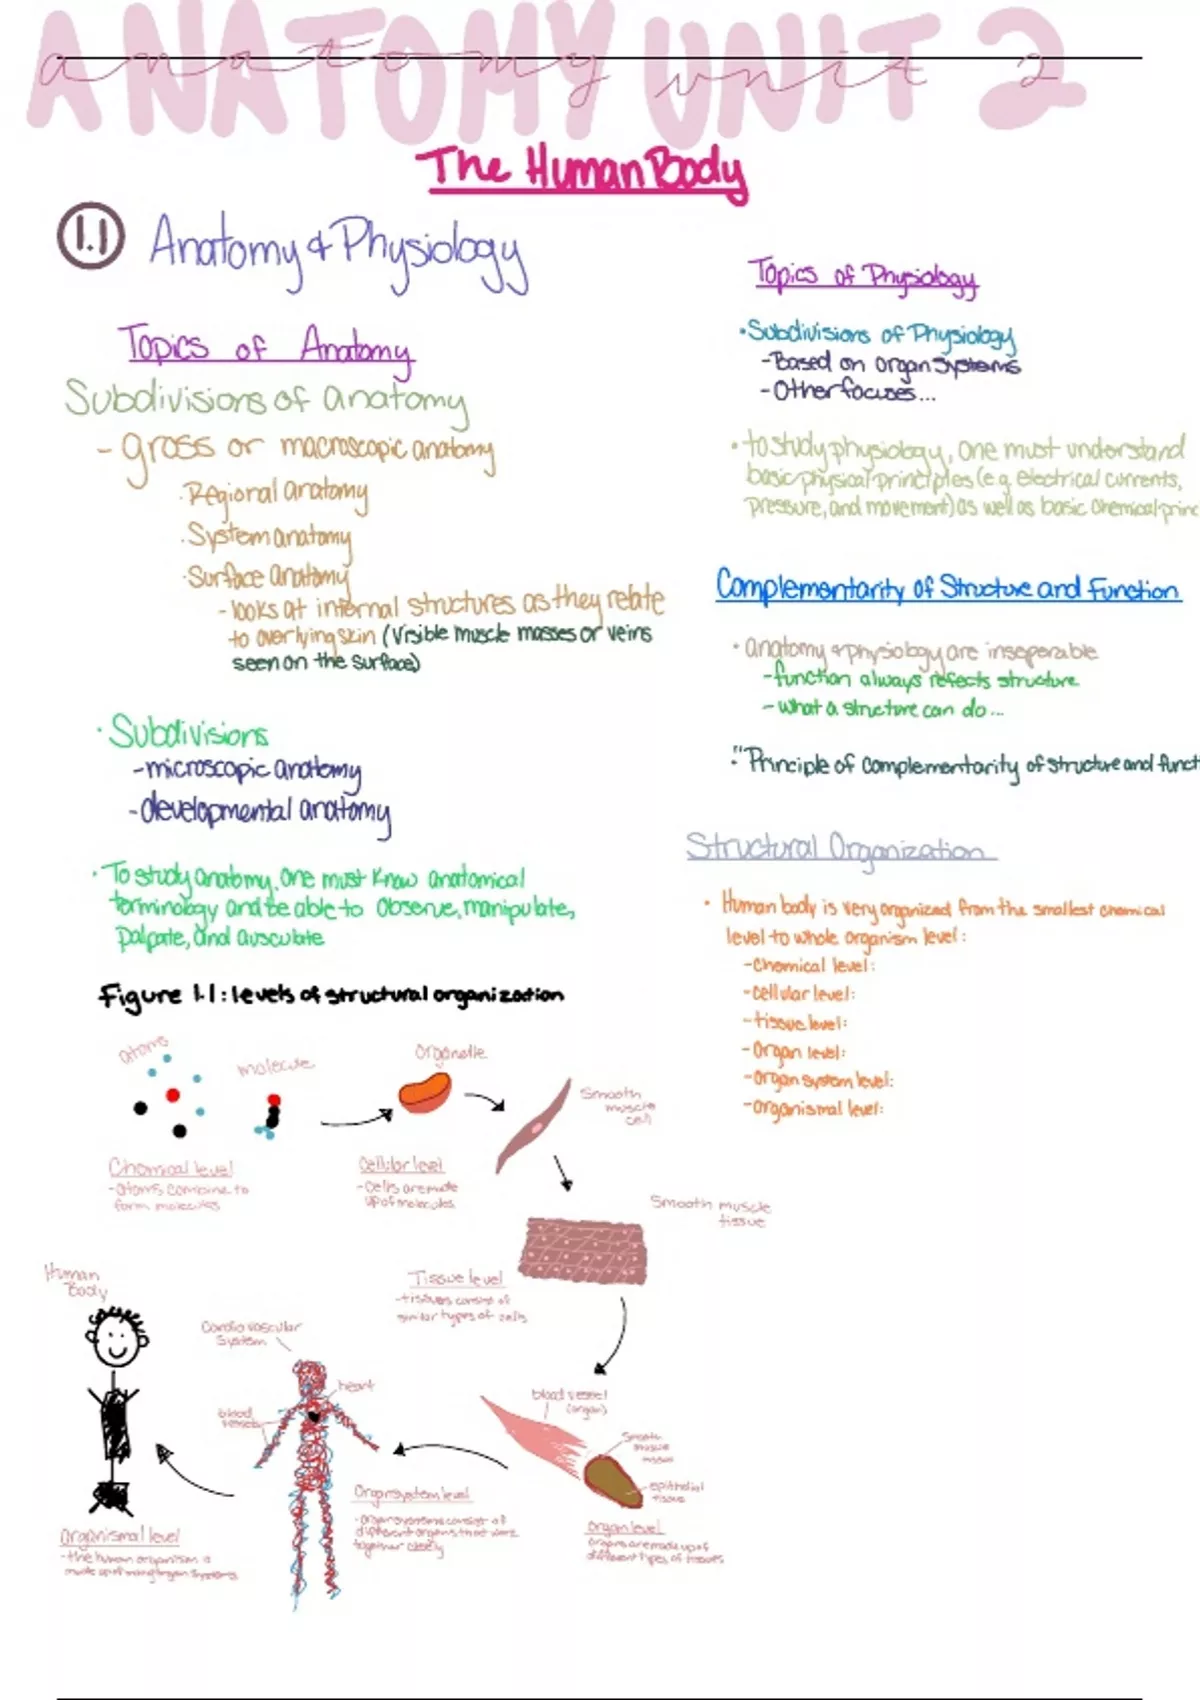 ANATOMY UNIT 2
anatomy unit 2
The Human Body
1.1 Anatomy & Physiology
Topics of Anatomy
Subdivisions of anatomy
- gross or macroscopic anatomy
· Regional anatomy
· System anatomy
· Surface anatomy
- looks at internal structures as they relate
to overlying skin (visible muscle masses or veins
seen on the surface)
· Subdivisions
- microscopic anatomy
- developmental anatomy
· To study anatomy, one must know anatomical
terminology and be able to observe, manipulate,
palpate, and auscultate
Topics of Physiology
· Subdivisions of Physiology
- Based on organ systems
- Other focuses...
· to study physiology, one must understand
basic physical principles (e.g. electrical currents,
pressure, and movement) as well as basic chemical princ
Complementarity of Structure and Function
· anatomy & physiology are inseperable
- function always reflects structure
- what a structure can do...
· "Principle of complementarity of structure and funct
Structural Organization
· Human body is very organized from the smallest chemical
level to whole organism level:
- Chemical level:
- cellular level:
- tissue level:
- Organ level:
- organ system level:
- organismal level:
Figure 1.1: levels of structural organization
atoms
molecule
organelle
Smooth
muscle
cell
Chemical level
- atoms combine to
form molecules
Cellular level
- cells are made
up of molecules
Smooth muscle
tissue
Tissue level
- tissues consist of
similar types of cells
Human
Body
Cardiovascular
System
heart
blood
vessels
blood vessel
(organ)
Smooth
muscle
tissue
epithelial
tissue
Organ system level
- organ systems consist of
different organs that work
together closely
organ level
organs are made up of
different types of tissues
organismal level
- the human organism is
made up of many organ systems